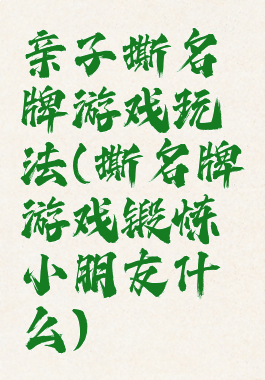 亲子撕名
牌游戏玩
法(撕名牌
游戏锻炼
小朋友什
么)